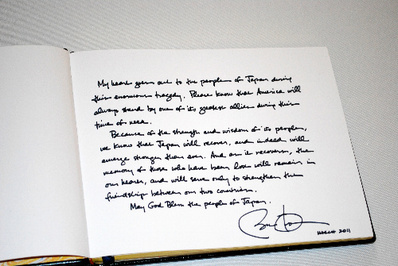 My heart goes out to the people of Japan during
this enormous tragedy. Please know that America will
always stand by one of its greatest allies during this
time of need.
Because of the strength and wisdom of its people,
we know that Japan will recover, and indeed will
emerge stronger than ever. And as it recovers, the
memory of those who have been lost will remain in
our hearts, and will serve only to strengthen the
friendship between our two countries.
May God Bless the people of Japan.
March 2011